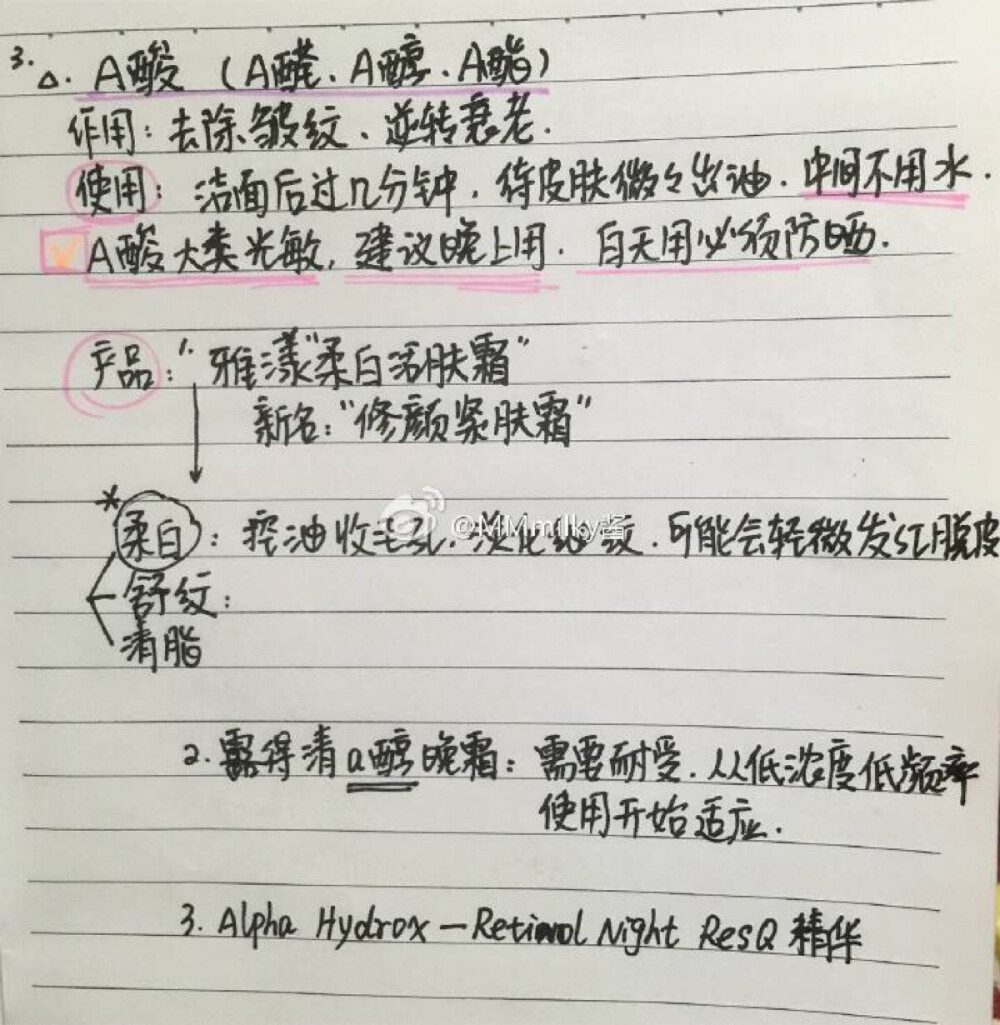 3. △. A酸（A醛、A醇、A酯）
作用：去除皱纹、逆转衰老.
使用：洁面后过几分钟，待皮肤微々出油．中间不用水．
A酸大类光敏，建议晚上用．白天用必须防晒．
产品：1. "雅漾"柔白活肤霜"
新名："修颜紧肤霜"
* 柔白：控油收毛孔，淡化细纹．可能会轻微发红脱皮
@MMmilky酱
舒纹：
清脂
2. 露得清a醇晚霜：需要耐受．从低浓度低频率
使用开始适应．
3. Alpha Hydrox — Retinol Night ResQ 精华